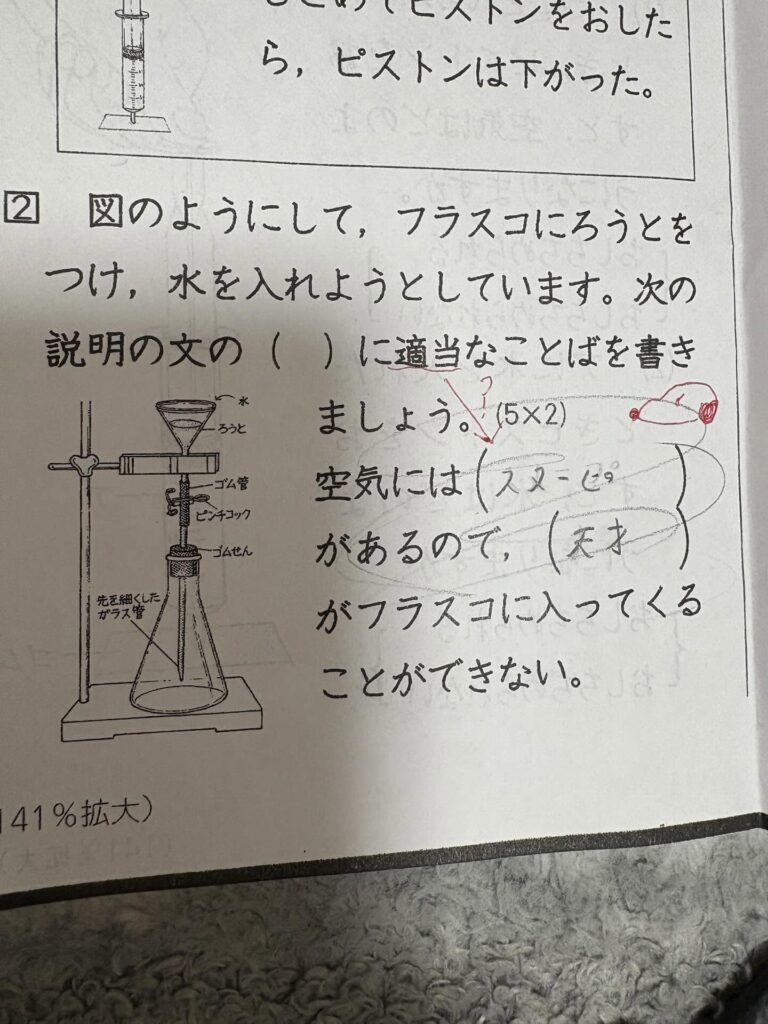 じこめてピストンをおした
ら，ピストンは下がった。
2 図のようにして，フラスコにろうとを
つけ，水を入れようとしています。次の
説明の文の（ ）に適当なことばを書き
ましょう。(5×2)
?
空気には(スヌーピー)
があるので，(天才)
がフラスコに入ってくる
ことができない。
水
ろうと
ゴム管
ピンチコック
ゴムせん
先を細くした
ガラス管
141%拡大）